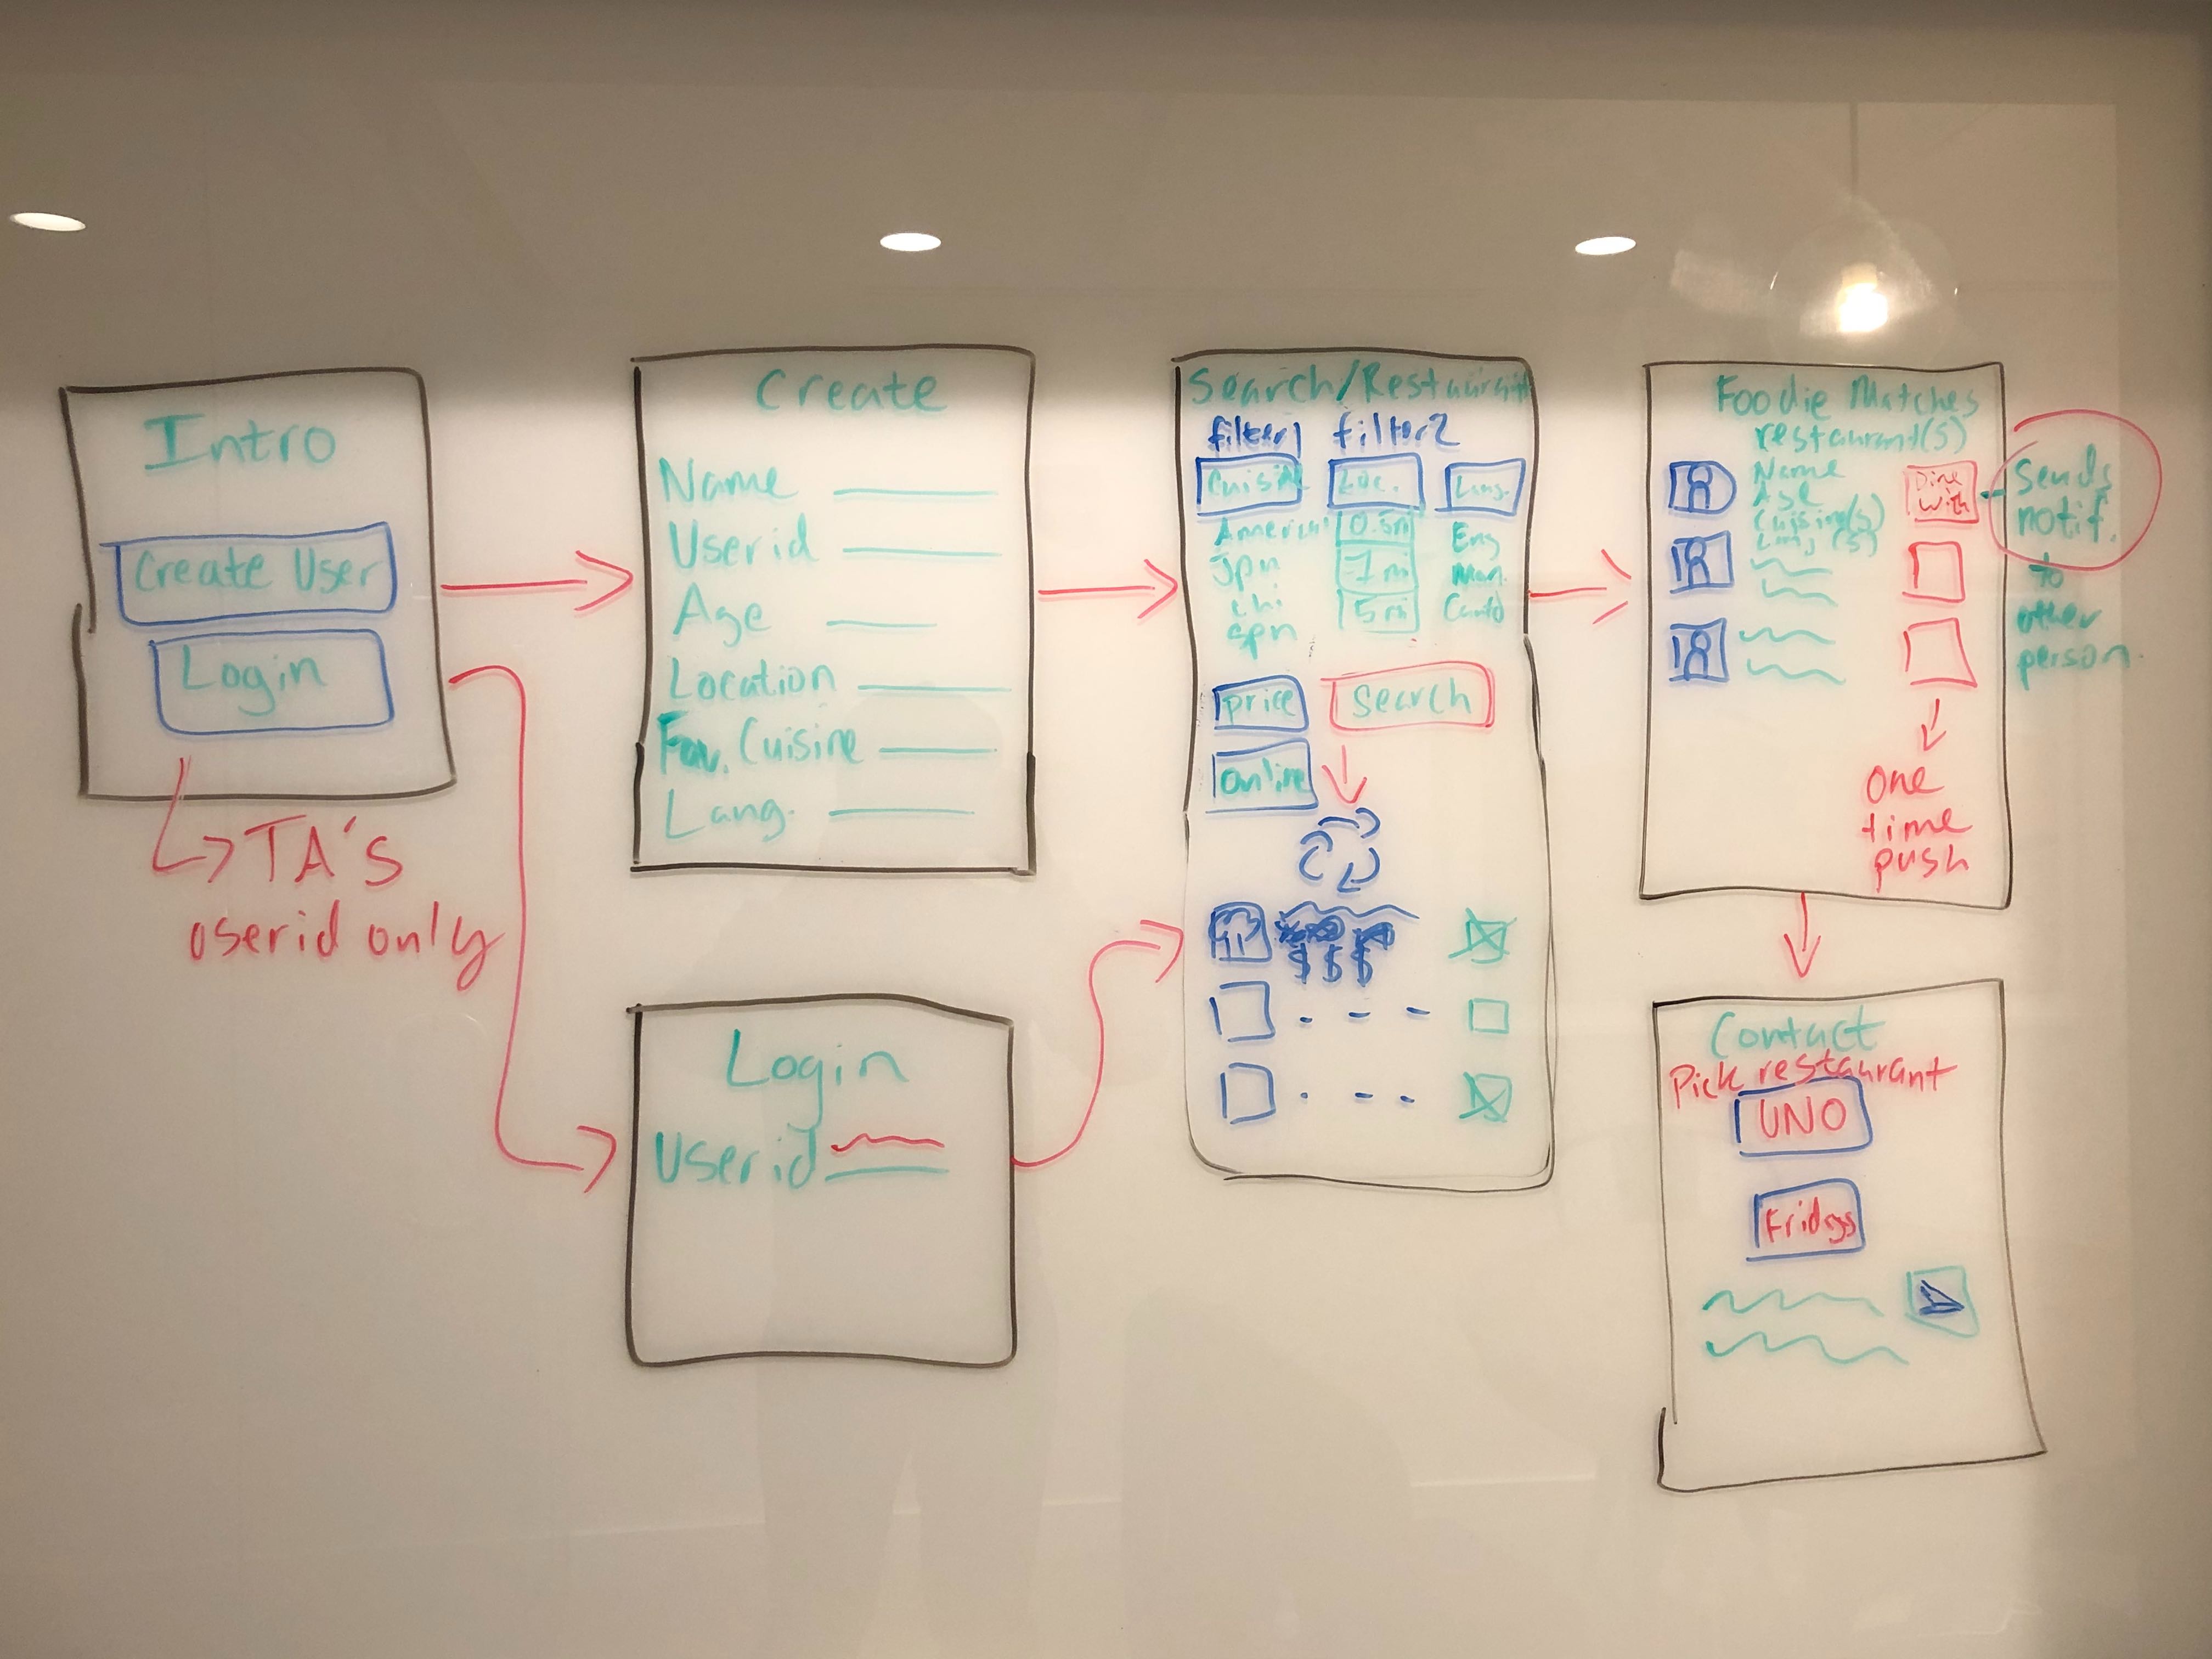 Intro
Create User
Login
TA's
userid only
Create
Name
Userid
Age
Location
Fav. Cuisine
Lang.
Login
Userid
Search/Restaurant
filter1 filter2
Cuisine Loc. Lang.
0.5m Eng
Jpn 1 mi Man.
chi 5 mi Canto
spn
price search
online
$ $ $
Foodie Matches
restaurant(s)
Name
Age
Cuisine(s)
Lang(s)
Dine
with
Sends
notif.
to
other
person.
one
time
push
Contact
Pick restaurant
UNO
Fridays